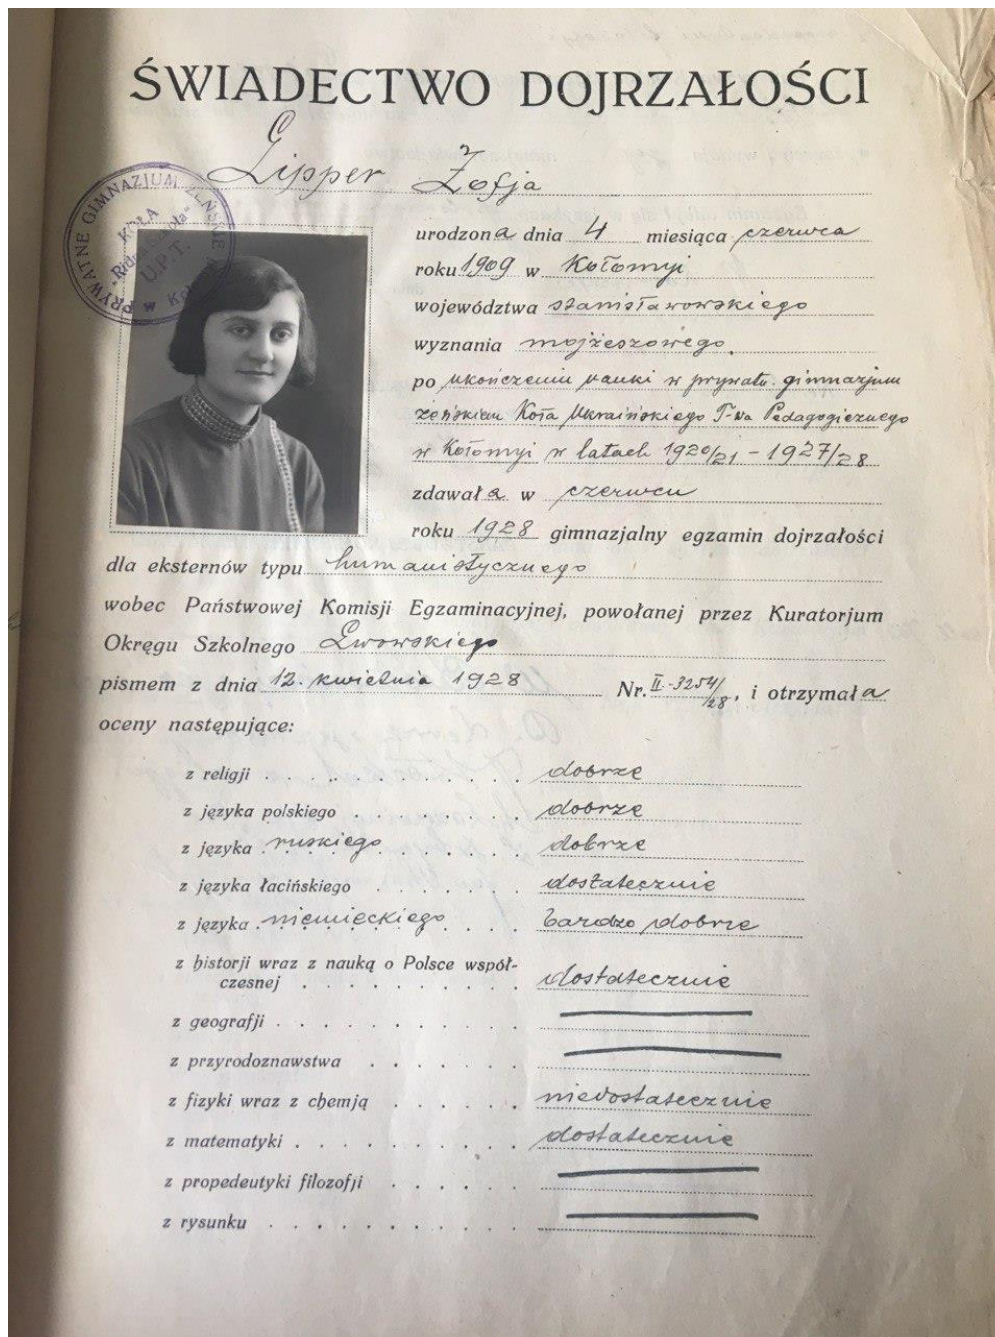 ŚWIADECTWO DOJRZAŁOŚCI
Lipper Zofja
PRYWATNE GIMNAZJUM ŻEŃSKIE
KOŁA
"Ridna Szkoła"
U.P.T.
w Koł
urodzona dnia 4 miesiąca czerwca
roku 1909 w Kołomyi
województwa stanisławowskiego
wyznania mojżeszowego.
po ukończeniu nauki w prywatn. gimnazjum
żeńskiem Koła Ukraińskiego T-wa Pedagogicznego
w Kołomyi w latach 1920/21 - 1927/28
zdawała w czerwcu
roku 1928 gimnazjalny egzamin dojrzałości
dla eksternów typu humanistycznego
wobec Państwowej Komisji Egzaminacyjnej, powołanej przez Kuratorjum
Okręgu Szkolnego Lwowskiego
pismem z dnia 12. kwietnia 1928 Nr. II.-3254/28, i otrzymała
oceny następujące:
z religji . . . . . . . . dobrze
z języka polskiego . . . . . . . dobrze
z języka ruskiego . . . . . dobrze
z języka łacińskiego . . . . . . dostatecznie
z języka niemieckiego . . . . bardzo dobrze
z historji wraz z nauką o Polsce współ-
czesnej . . . . . . . . . dostatecznie
z geografji . . . . . . . . .
z przyrodoznawstwa . . . . . .
z fizyki wraz z chemją . . . . . niedostatecznie
z matematyki . . . . . . . . dostatecznie
z propedeutyki filozofji . . . . .
z rysunku . . . . . . . . .